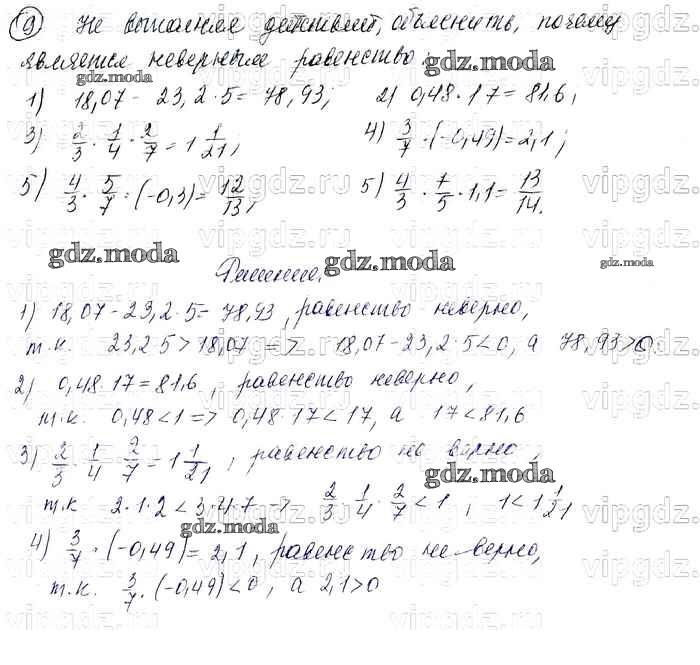 9) Не выполняя действий, объяснить, почему
является неверным равенство.
1) 18,07 - 23,2 · 5 = 78,93; 2) 0,48 · 17 = 81,6;
3) 2/3 · 1/4 · 2/7 = 1 1/21; 4) 3/7 · (-0,49) = 2,1;
5) 4/3 · 5/7 : (-0,3) = 12/13; 5) 4/3 · 1/5 · 1,1 = 13/14.
Решение.
1) 18,07 - 23,2 · 5 = 78,93, равенство неверно,
т.к. 23,2·5 > 18,07 => 18,07 - 23,2·5 < 0, а 78,93 > 0.
2) 0,48 · 17 = 81,6, равенство неверно,
т.к. 0,48 < 1 => 0,48 · 17 < 17, а 17 < 81,6
3) 2/3 · 1/4 · 2/7 = 1 1/21, равенство не верно,
т.к 2·1·2 < 3·4·7 => 2/3 · 1/4 · 2/7 < 1, 1 < 1 1/21
4) 3/7 · (-0,49) = 2,1, равенство не верно,
т.к. 3/7 · (-0,49) < 0, а 2,1 > 0
gdz.moda
vipgdz.ru